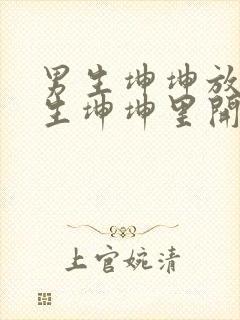 男生坤坤放
生坤坤里開
上官婉清